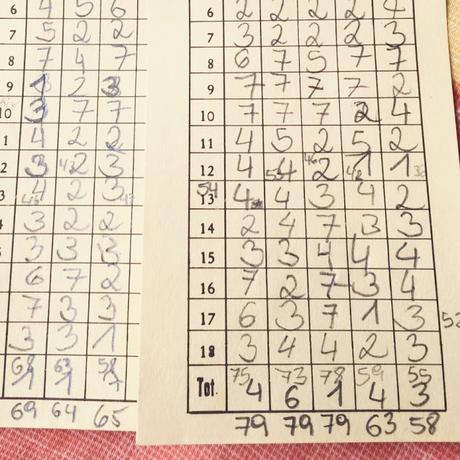 6 4 5 6
7 5 2 2
8 7 4 7
9 1 2 3
10 3 7 7
1 4 2 2
2 3 2 3
3 4 2 3
4 3 2 2
5 3 3 3
6 7 2
7 3 3
3 3 1
68 63 58
1 1
69 64 65
6 2 2 2 2 4
7 3 2 2 2 3
8 6 7 5 7 7
9 7 7 7 7 2
10 7 7 7 2 4
11 4 5 2 5 2
12 4 4 2 1 1
54 13 4 4 3 4 2
14 2 4 7 3 3
15 3 3 4 4 4
16 7 2 7 3 4
17 6 3 7 1 3
18 3 4 4 2 3
75 73 78 59 55
Tot. 4 6 1 4 3
79 79 79 63 58